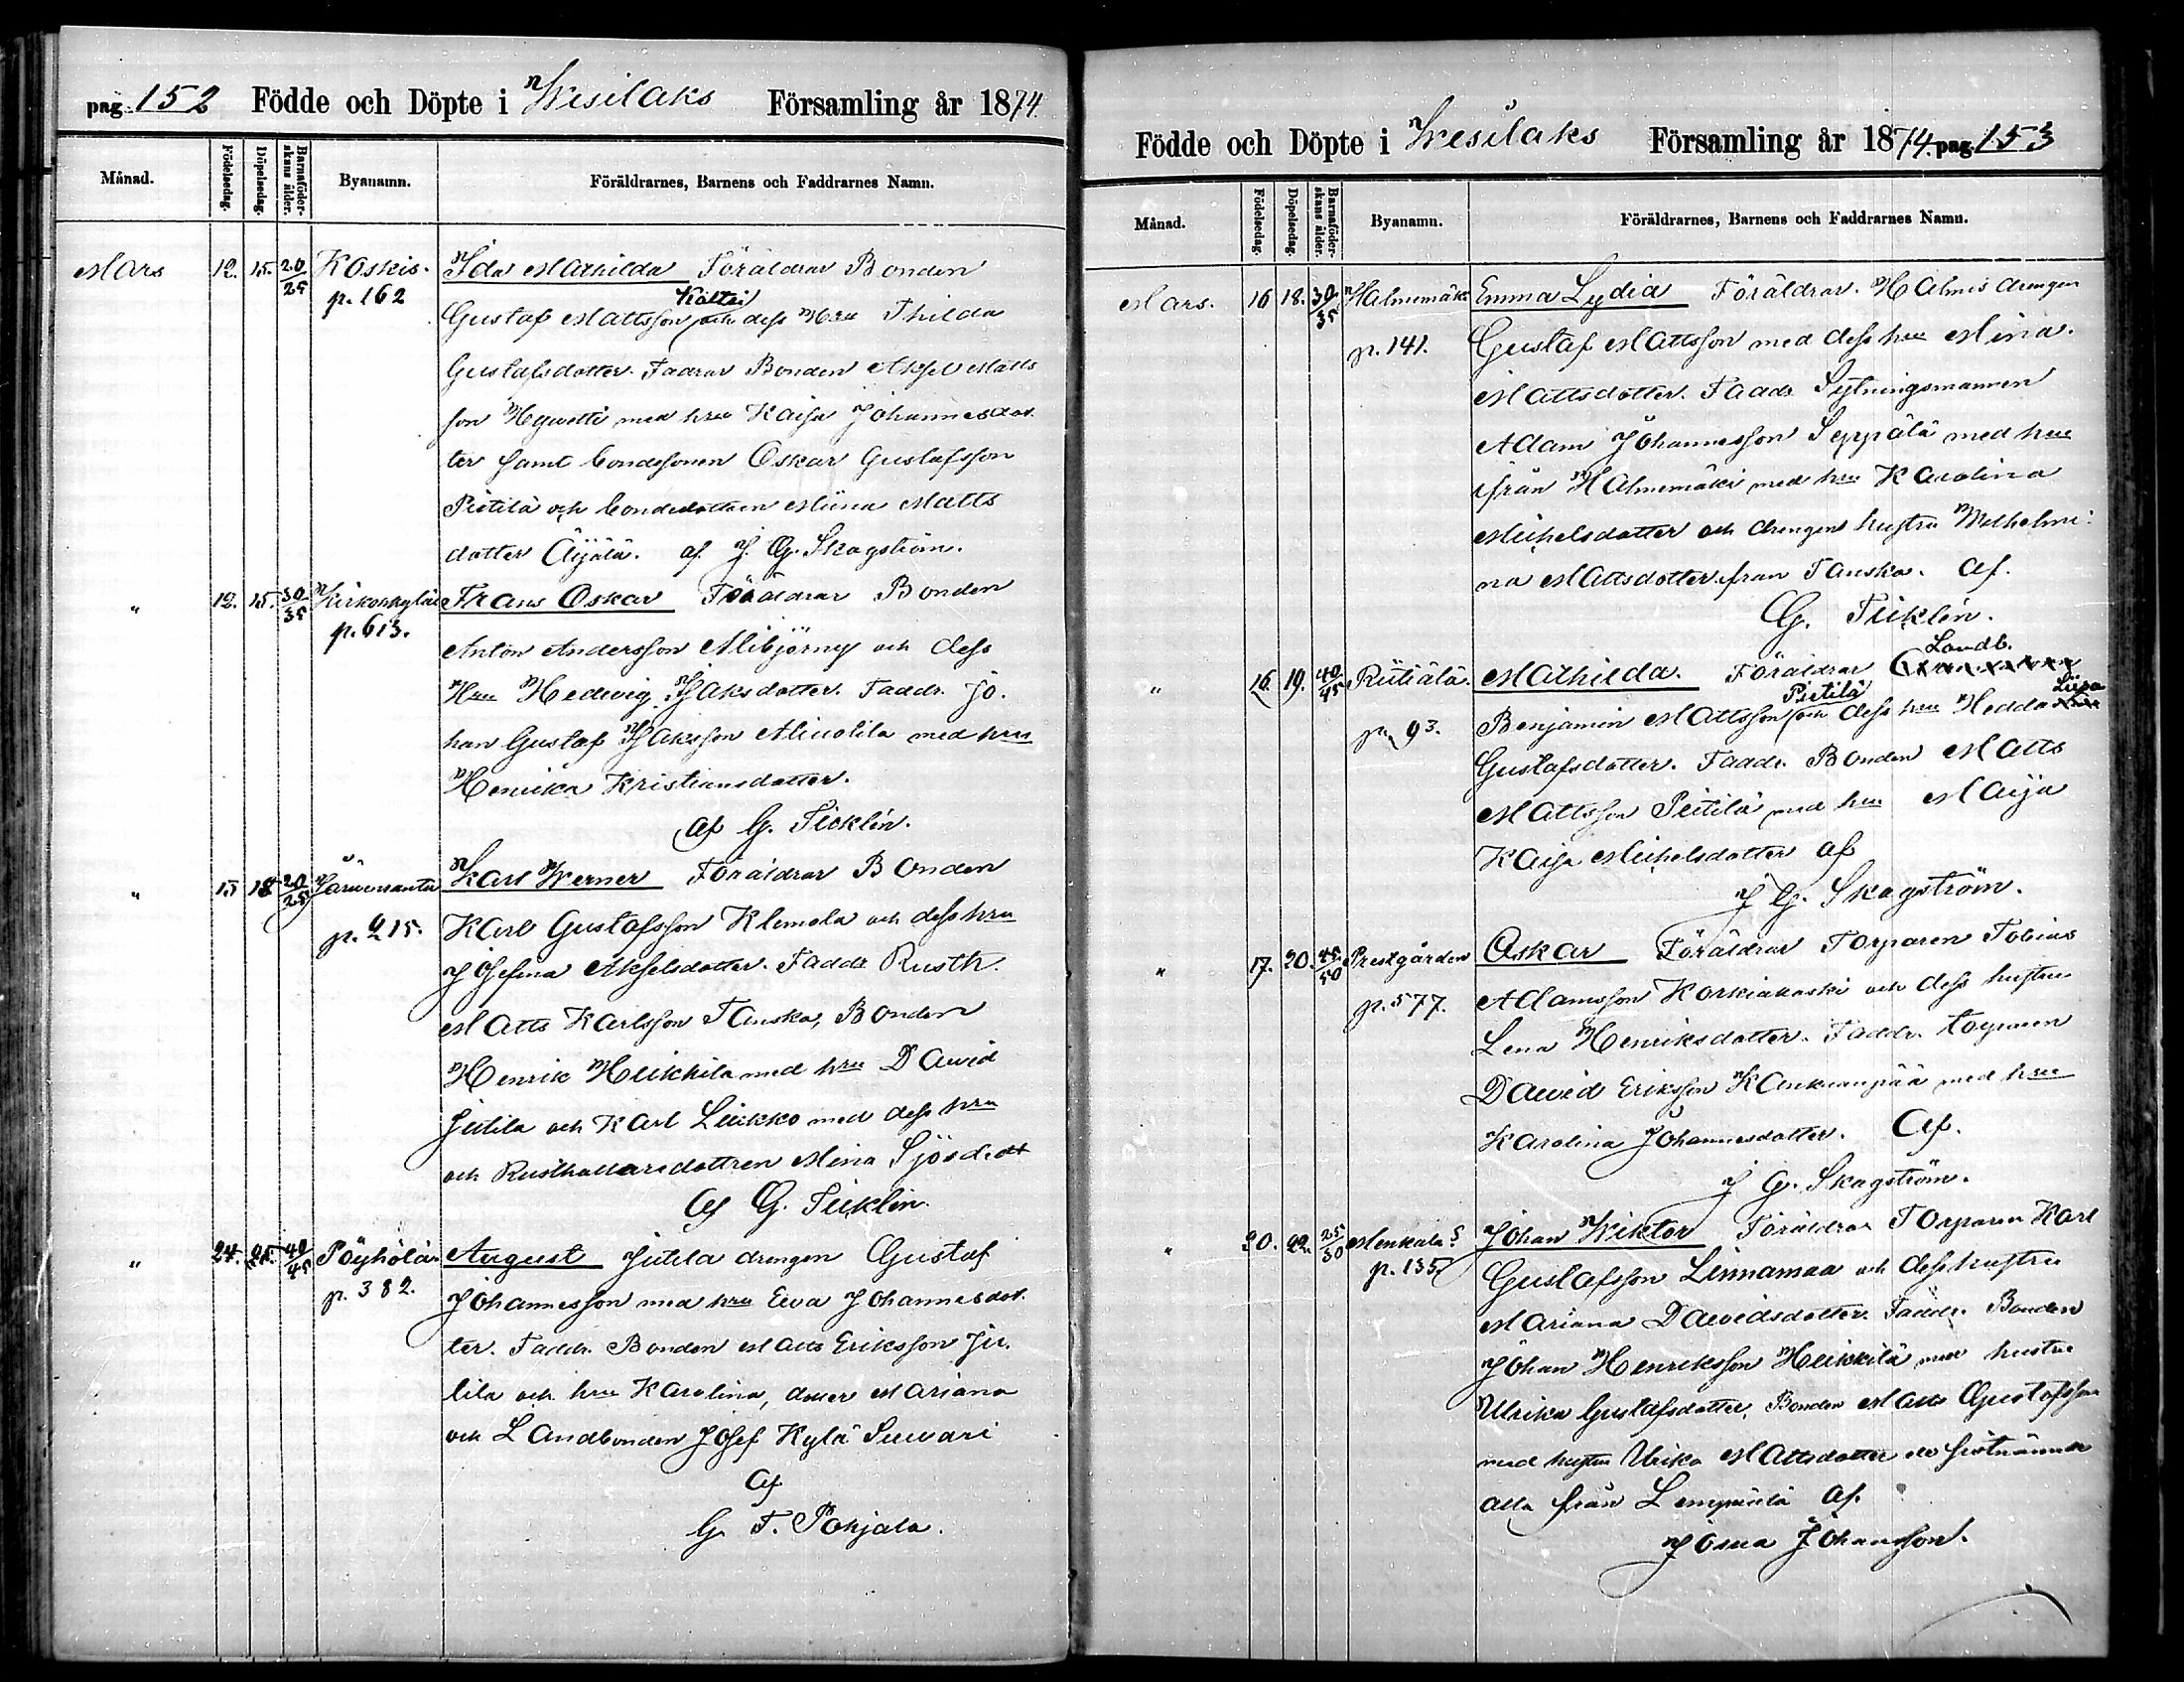 pag. 152 Födde och Döpte i Wesilaks Församling år 1874.
Månad. Födelsedag. Döpelsedag. Barnaföder-skans ålder. Byanamn. Föräldrarnes, Barnens och Faddrarnes Namn.
Mars 12. 15. 20/25 Koskis. Ida Mathilda Föräldrar Bonden
p. 162 Gustaf Mattsson Kältti och dess Hru Thilda
Gustafsdotter. Fadrar Bonden Aksel Matts
son Hywetti med hru Kaisa Johannesdot
ter samt bondesonen Oskar Gustafsson
Pietilä och bondedottren Miina Matts
dotter Äijälä. af J. G. Skogström.
" 12. 15. 30/35 Kirkonkylä Frans Oskar Föräldrar Bonden
p. 613. Anton Andersson Alibjörny och dess
Hru Hedwig Isaksdotter. Faddr. Jo.
han Gustaf Isaksson Alinolila med hru
Henrika Kristiansdotter.
af G. Ticklén.
" 15 18 20/25 Järwensanta Karl Werner Föräldrar Bonden
p. 215. Karl Gustafsson Klemola och dess hru
Josefina Akselsdotter. Faddr Rusth.
Matts Karlsson Tanska, Bonden
Henrik Heikkilä med hru Dawid
Jutila och Karl Liukko med dess hru
och Rusthållaredottren Mina Sjöstedt
Af G. Ticklén.
" 24. 25. 40/45 Pöyhölä August Jutila drengen Gustaf
p. 382. Johannesson med hru Ewa Johannesdot.
ter. Faddr. Bonden Matts Eriksson Ju.
tila och hru Karolina, dotter Mariana
och Landbonden Josef Kylä Suwari
Af
G. F. Pohjala.
Födde och Döpte i Wesilaks Församling år 1874. pag. 153
Månad. Födelsedag. Döpelsedag. Barnaföder-skans ålder. Byanamn. Föräldrarnes, Barnens och Faddrarnes Namn.
Mars. 16 18. 30/35 Halmemäk. Emma Lydia Föräldrar. Halmis drengen
p. 141. Gustaf Mattsson med dess hru Mina.
Mattsdotter. Faddr Sytningsmannen
Adam Johannesson Seppälä med hru
ifrån Halmemäki med hru Karolina
Michelsdotter och drengens hustru Wilhelmi:
na Mattsdotter från Tanska. Af.
G. Ticklén.
Landb.
" 16. 19. 40/45 Rütiälä. Mathilda. Föräldrar
p. 93. Benjamin Mattsson Pietilä och dess hru Hedda Liisa
Gustafsdotter. Faddr. Bonden Matts
Mattsson Pietilä med hru Maija
Kaisa Michelsdotter af
J G. Skogström.
" 17. 20. 45/50 Prestgården Oskar Föräldrar Torparen Tobias
p. 577. Adamsson Korkiakoski och dess hustru
Lena Henriksdotter. Faddr. torparen
Dawid Eriksson Kankaanpää med hru
Karolina Johannesdotter. Af.
J G. Skogström.
" 20. 22. 25/30 Menkala Johan Wiktor Föräldrar Torparen Karl
p. 135 Gustafsson Linnamaa och dess hustru
Mariana Dawidsdotter. Faddr. Bonden
Johan Henriksson Heikkilä med hustru
Ulrika Gustafsdotter, Bonden Matts Gustafsson
med hustru Ulrika Mattsdotter de sistnämnde
alla från Lempäälä af.
Josua Johansson.